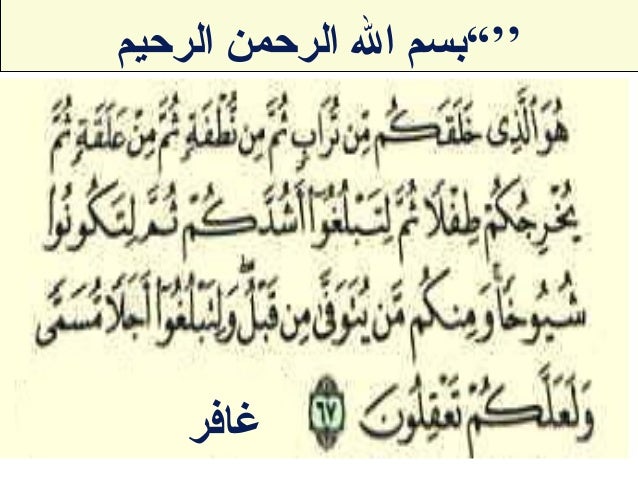 ”“بسم الله الرحمن الرحيم
هُوَ ٱلَّذِى خَلَقَكُم مِّن تُرَابٍ ثُمَّ مِن نُّطْفَةٍ ثُمَّ مِنْ عَلَقَةٍ ثُمَّ
يُخْرِجُكُمْ طِفْلًا ثُمَّ لِتَبْلُغُوٓا۟ أَشُدَّكُمْ ثُمَّ لِتَكُونُوا۟
شُيُوخًا ۚ وَمِنكُم مَّن يُتَوَفَّىٰ مِن قَبْلُ ۖ وَلِتَبْلُغُوٓا۟ أَجَلًا مُّسَمًّى
وَلَعَلَّكُمْ تَعْقِلُونَ ٦٧ غافر